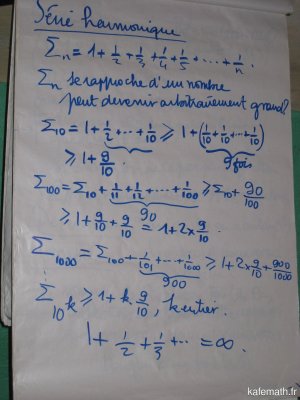 Série harmonique
Σn = 1 + 1/2 + 1/3 + 1/4 + 1/5 + ... + 1/n.
Σn se rapproche d'un nombre
peut devenir arbitrairement grand?
Σ10 = 1 + 1/2 + ... + 1/10 ≥ 1 + (1/10 + 1/10 + ... + 1/10)
9 fois
≥ 1 + 9/10.
Σ100 = Σ10 + 1/11 + 1/12 + ... + 1/100 ≥ Σ10 + 90/100
90
≥ 1 + 9/10 + 9/10 = 1 + 2 x 9/10
Σ1000 = Σ100 + 1/101 + ... + 1/1000 ≥ 1 + 2 x 9/10 + 900/1000
900
Σ10^k ≥ 1 + k. 9/10, k entier.
1 + 1/2 + 1/3 + ... = ∞.
kafemath.fr